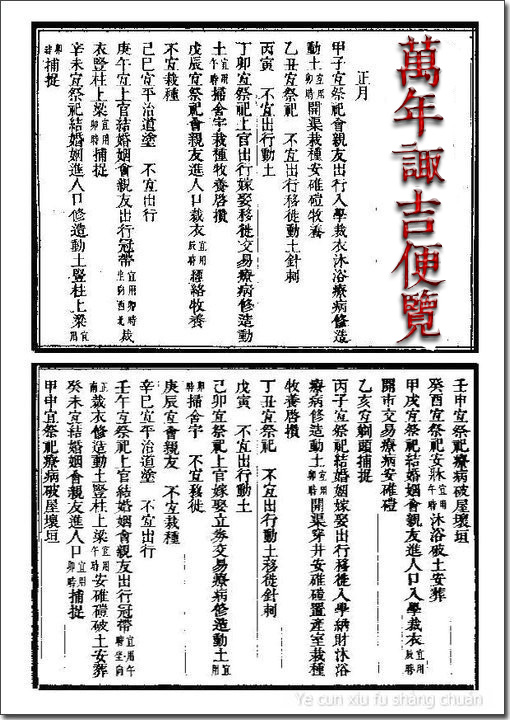 萬年諏吉便覽
正月
甲子宜祭祀會親友出行入學裁衣沐浴療病修造
動土宜用卯時開渠栽種安碓磑牧養
乙丑宜祭祀 不宜出行移徙動土針刺
丙寅 不宜出行動土
丁卯宜祭祀上官出行嫁娶移徙交易療病修造動
土宜用午時掃舍宇栽種牧養啓攢
戊辰宜祭祀會親友進人口裁衣宜用辰時經絡牧養
不宜栽種
己巳宜平治道塗 不宜出行
庚午宜上官結婚姻會親友出行冠帶宜用卯時坐向西北裁
衣豎柱上梁宜用卯時捕捉
辛未宜祭祀結婚姻進人口修造動土豎柱上梁宜用
卯時捕捉
壬申宜祭祀療病破屋壞垣
癸酉宜祭祀安牀午時沐浴破土安葬
甲戌宜祭祀結婚姻會親友進人口入學裁衣宜用辰時
開市交易療病安碓磑
乙亥宜剃頭捕捉
丙子宜祭祀結婚姻嫁娶出行移徙入學納財沐浴
療病修造動土宜用卯時開渠穿井安碓磑置產室栽種
牧養啓攢
丁丑宜祭祀 不宜出行動土移徙針刺
戊寅 不宜出行動土
己卯宜祭祀上官嫁娶立券交易療病修造動土宜用
卯時掃舍宇 不宜移徙
庚辰宜會親友 不宜栽種
辛巳宜平治道塗 不宜出行
壬午宜祭祀上官結婚姻會親友出行冠帶宜用午時坐向
正南裁衣修造動土豎柱上梁宜用午時安碓磑破土安葬
癸未宜結婚姻會親友進人口宜用卯時捕捉
甲申宜祭祀療病破屋壞垣
Ye cun xiu fu shang chuan